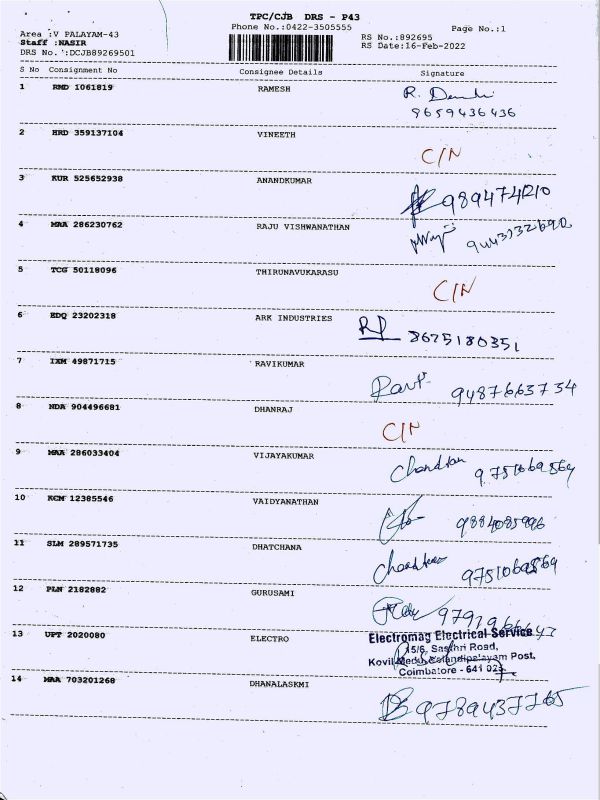 TPC/CJB DRS - P43
Phone No.:0422-3505555 Page No.:1
Area :V PALAYAM-43 RS No.:892695
Staff :NASIR RS Date:16-Feb-2022
DRS No.':DCJB89269501
S No Consignment No Consignee Details Signature
1 RMD 1061819 RAMESH R.
9659436436
2 HRD 359137104 VINEETH
C/N
3 KUR 525652938 ANANDKUMAR 9894741210
4 MAA 286230762 RAJU VISHWANATHAN
5 TCG 50118096 THIRUNAVUKARASU
C/N
6 EDQ 23202318 ARK INDUSTRIES 8675180351
7 IXM 49871715 RAVIKUMAR
Ravi 9487663734
8 NDA 904496681 DHANRAJ
C/N
9 MAA 286033404 VIJAYAKUMAR
Chandran 9751069869
10 KCM 12385546 VAIDYANATHAN
9884085996
11 SLM 289571735 DHATCHANA
9751069869
12 PLN 2182882 GURUSAMI
13 UPT 2020080 ELECTRO Electromag Electrical Service
15/6, Sasthri Road,
Kovil Medu, Velandipalayam Post,
Coimbatore - 641 025.
14 MAA 703201268 DHANALASKMI
9789437765